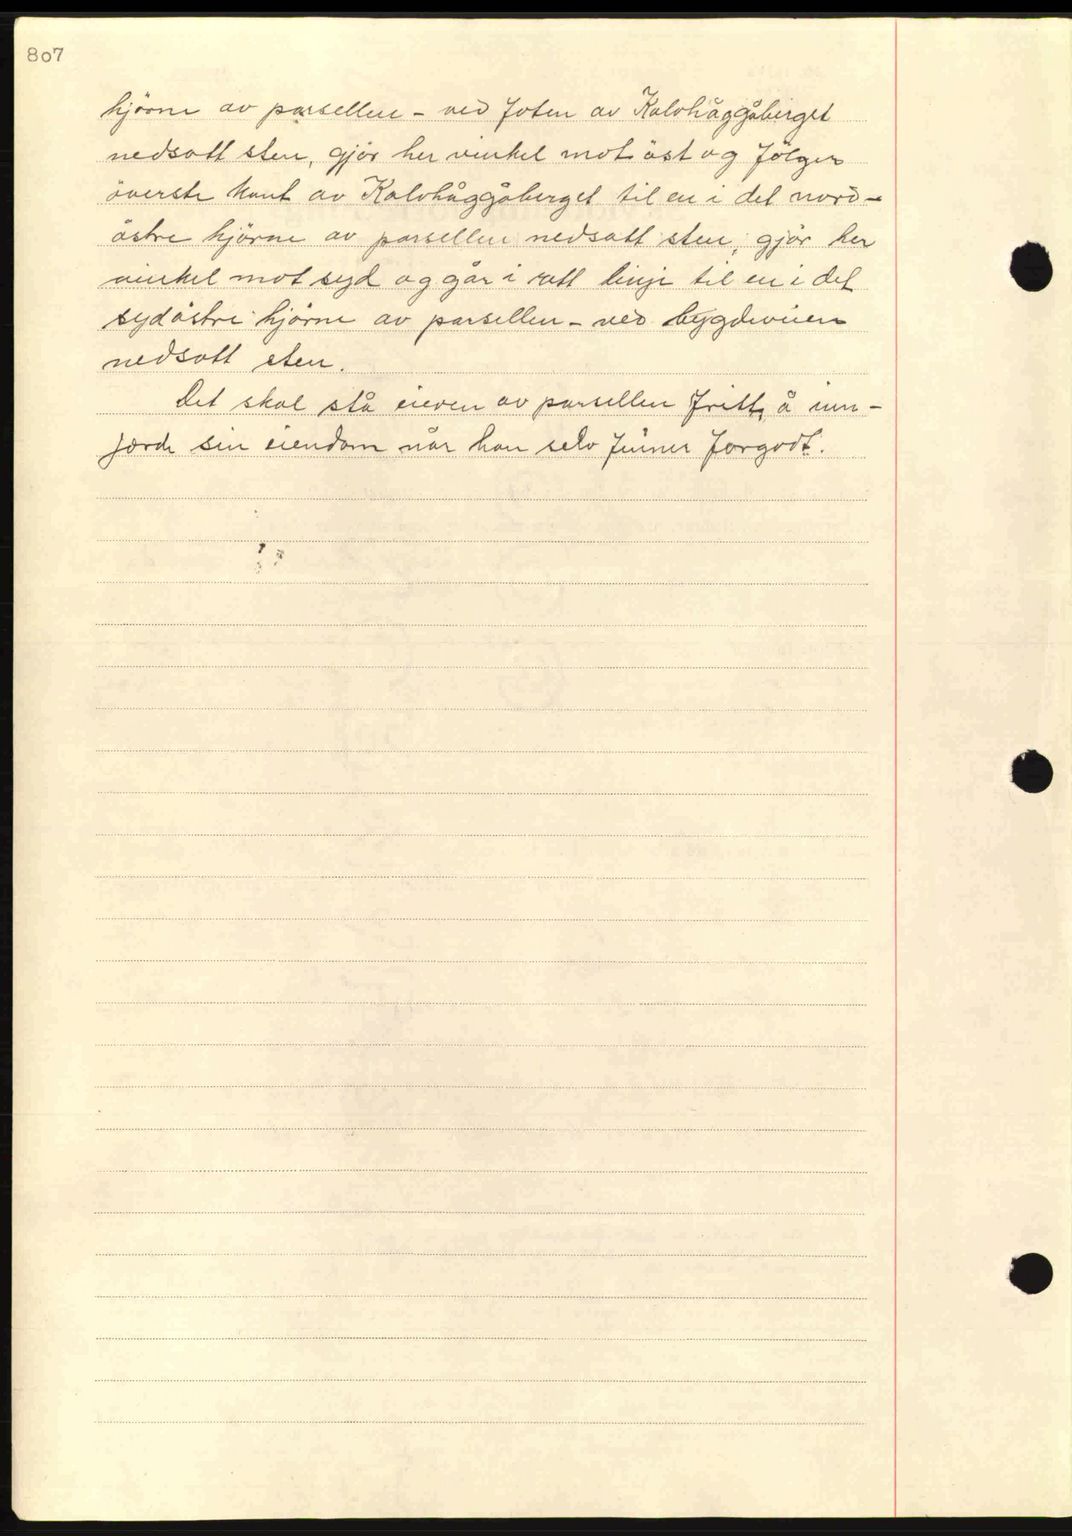 807
hjörne av parsellen - ved foten av Kalvhåggåberget
nedsatt sten, gjör her vinkel mot öst og fölger
överste kant av Kalvhåggåberget til en i det nord-
östre hjörne av parsellen nedsatt sten, gjör her
vinkel mot syd og går i rett linje til en i det
sydöstre hjörne av parsellen - ved bygdeveien
nedsatt sten.
Det skal stå eieren av parsellen fritt, å inn-
fjerde sin eiendom når han selv finner forgodt.